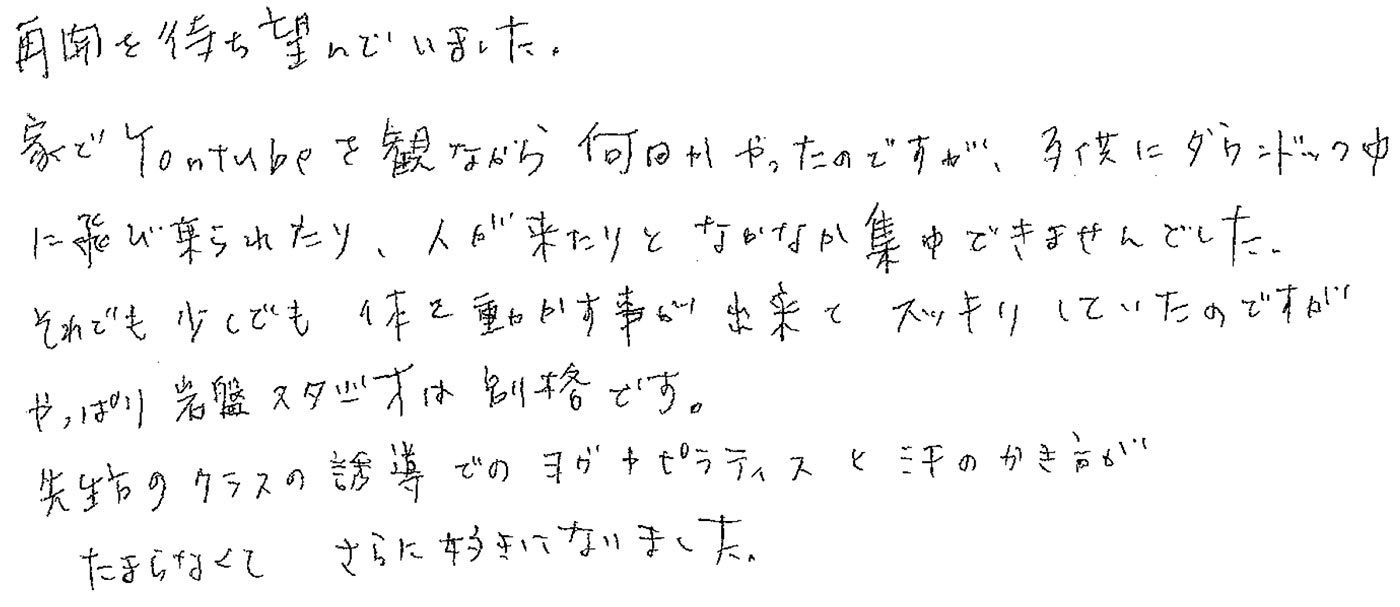 再開を待ち望んでいました。
家でYoutubeを観ながら何回かやったのですが、子供にダウンドッグ中
に飛び乗られたり、人が来たりとなかなか集中できませんでした。
それでも少しでも体を動かす事が出来てスッキリしていたのですが
やっぱり岩盤スタジオは別格です。
先生方のクラスの誘導でのヨガやピラティスと汗のかき方が
たまらなくて さらに好きになりました。